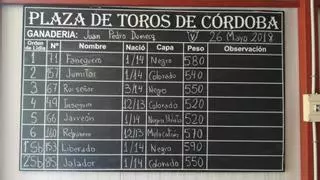 PLAZA DE TOROS DE CÓRDOBA
GANADERÍA: Juan Pedro Domecq 26 Mayo 2018
Orden de Lidia Nº Nombre Nació Capa Peso Observación
1 71 Faneguero 1/14 Negro 580
2 57 Jumillas 1/14 Colorado 540
3 67 Ruiseñor 3/14 Negro 550
4 49 12/13 Colorado 520
5 66 1/14 Negro 520
6 160 12/13 Melocotón 570
1ºSb 153 Liberado 1/14 Negro 590
2ºSb 85 Jalador 1/14 Colorado 550